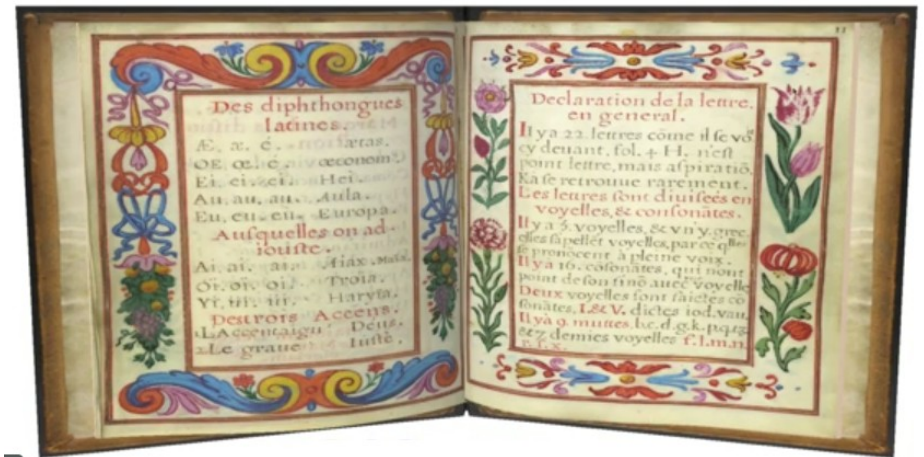 Des diphthongues
latines.
Æ. æ. é. ætas.
OE. œ. é. œconomi
Ei. ei. ei. Hei.
Au. au. au. Aula.
Eu. eu. eu. Europa.
Ausquelles on ad-
iouste.
Ai. ai. ai. Aiax.
Oi. oi. oi. Troia.
Yi. Haryia.
Des trois Accens.
1. L'Accent aigu Deus.
2. Le graue Iustè.
11
Declaration de la lettre.
en general.
Il y a 22. lettres cõme il se vo
cy deuant, fol. 4 H. n'est
point lettre, mais aspiratiõ.
Ka se retrouue rarement.
Les lettres sont diuisées en
voyelles, & consonãtes.
Il y a 5. voyelles, & vn y. grec.
elles sapellẽt voyelles, par ce q̃lles
se pronõcent à pleine voix.
Il y a 16. cõsonãtes, qui n'ont
point de son sinõ auec voyelle
Deux voyelles sont faictes cõ
sonãtes, I. & V. dictes iod. vau.
Il y a 9. muttes, b. c. d. g. k. p. q. t. z.
& 7 demies voyelles f. l. m. n.
r. s. x.